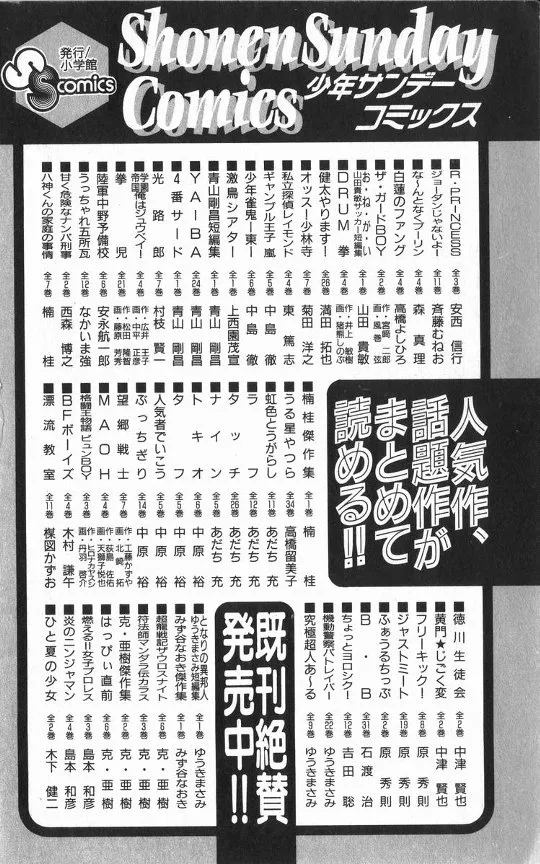 発行/
小学館
SS comics
Shonen Sunday
Comics
少年サンデー
コミックス
■R・PRINCESS 全3巻 安西 信行
■ジョーダンじゃないよ! 全11巻 斉藤むねお
■な〜んとなくプーリン 全4巻 森 真理
■白蓮のファング 全4巻 高橋よしひろ
■ザ・ガードBOY 作・宮崎 二郎 画・風巻 弦
■お・ね・が・い 山田貴敏サッカー短編集 全1巻 山田 貴敏
■DRUM 拳 全4巻 作・井上 敏樹 画・猪熊しのぶ
■健太やります! 全26巻 満田 拓也
■オッス!少林寺 全7巻 菊田 洋之
■私立探偵レイモンド 全4巻 東 篤志
■ギャンブル王子 嵐 全5巻 中島 徹
■少年雀鬼ー東ー 全6巻 中島 徹
■激鳥シアター 全1巻 上西園茂宣
■青山剛昌短編集 全1巻 青山 剛昌
■YAIBA 全24巻 青山 剛昌
■4番サード 全1巻 青山 剛昌
■光路郎 全7巻 村枝 賢一
■学園帝国俺はジュウベイ! 全4巻 作・広井 王子 画・中平 正彦
■拳児 全21巻 作・松田 隆智 画・藤原 芳秀
■陸軍中野予備校 全6巻 安永航一郎
■うっちゃれ五所瓦 全12巻 なかいま強
■甘く危険なナンパ刑事 全2巻 西森 博之
■八神くんの家庭の事情 全7巻 楠 桂
人気作、
話題作が
まとめて
読める!!
■楠桂傑作集 全1巻 楠 桂
■うる星やつら 全34巻 高橋留美子
■虹色とうがらし 全11巻 あだち 充
■ラフ 全12巻 あだち 充
■タッチ 全26巻 あだち 充
■ナイン 全5巻 あだち 充
■トキオ 全6巻 中原 裕
■タフ 中原 裕
■人気者でいこう 全5巻 中原 裕
■ぶっちぎり 全14巻 中原 裕
■望郷戦士 作・工藤かずや 画・北崎 拓
■MAOH 全4巻 作・荻島 佐佑 画・天獅子悦也
■格闘王物語ビュンBOY 全3巻 作・ヒロナカヤスシ 画・丹羽 啓介
■BFボーイズ 全4巻 木村 謙午
■漂流教室 全11巻 楳図かずお
■徳川生徒会 全2巻 中津 賢也
■黄門★じごく変 全2巻 中津 賢也
■フリーキック! 全8巻 原 秀則
■ジャストミート 全19巻 原 秀則
■ふぁうるちっぷ 全2巻 原 秀則
■B・B 全31巻 石渡 治
■ちょっとヨロシク! 全12巻 吉田 聡
■機動警察パトレイバー 全22巻 ゆうきまさみ
■究極超人あ〜る 全9巻 ゆうきまさみ
既刊絶賛
発売中!!
■となりの異邦人 ゆうきまさみ短編集 全1巻 ゆうきまさみ
■みず谷なおき傑作集 全1巻 みず谷なおき
■超龍戦記ザウロスナイト 全6巻 克・亜樹
■符法師マンダラ伝カラス 全3巻 克・亜樹
■克・亜樹傑作集 全2巻 克・亜樹
■はっぴぃ直前 全6巻 克・亜樹
■燃える!!女子プロレス 全3巻 島本 和彦
■炎のニンジャマン 全4巻 島本 和彦
■ひと夏の少女 全2巻 木下 健二